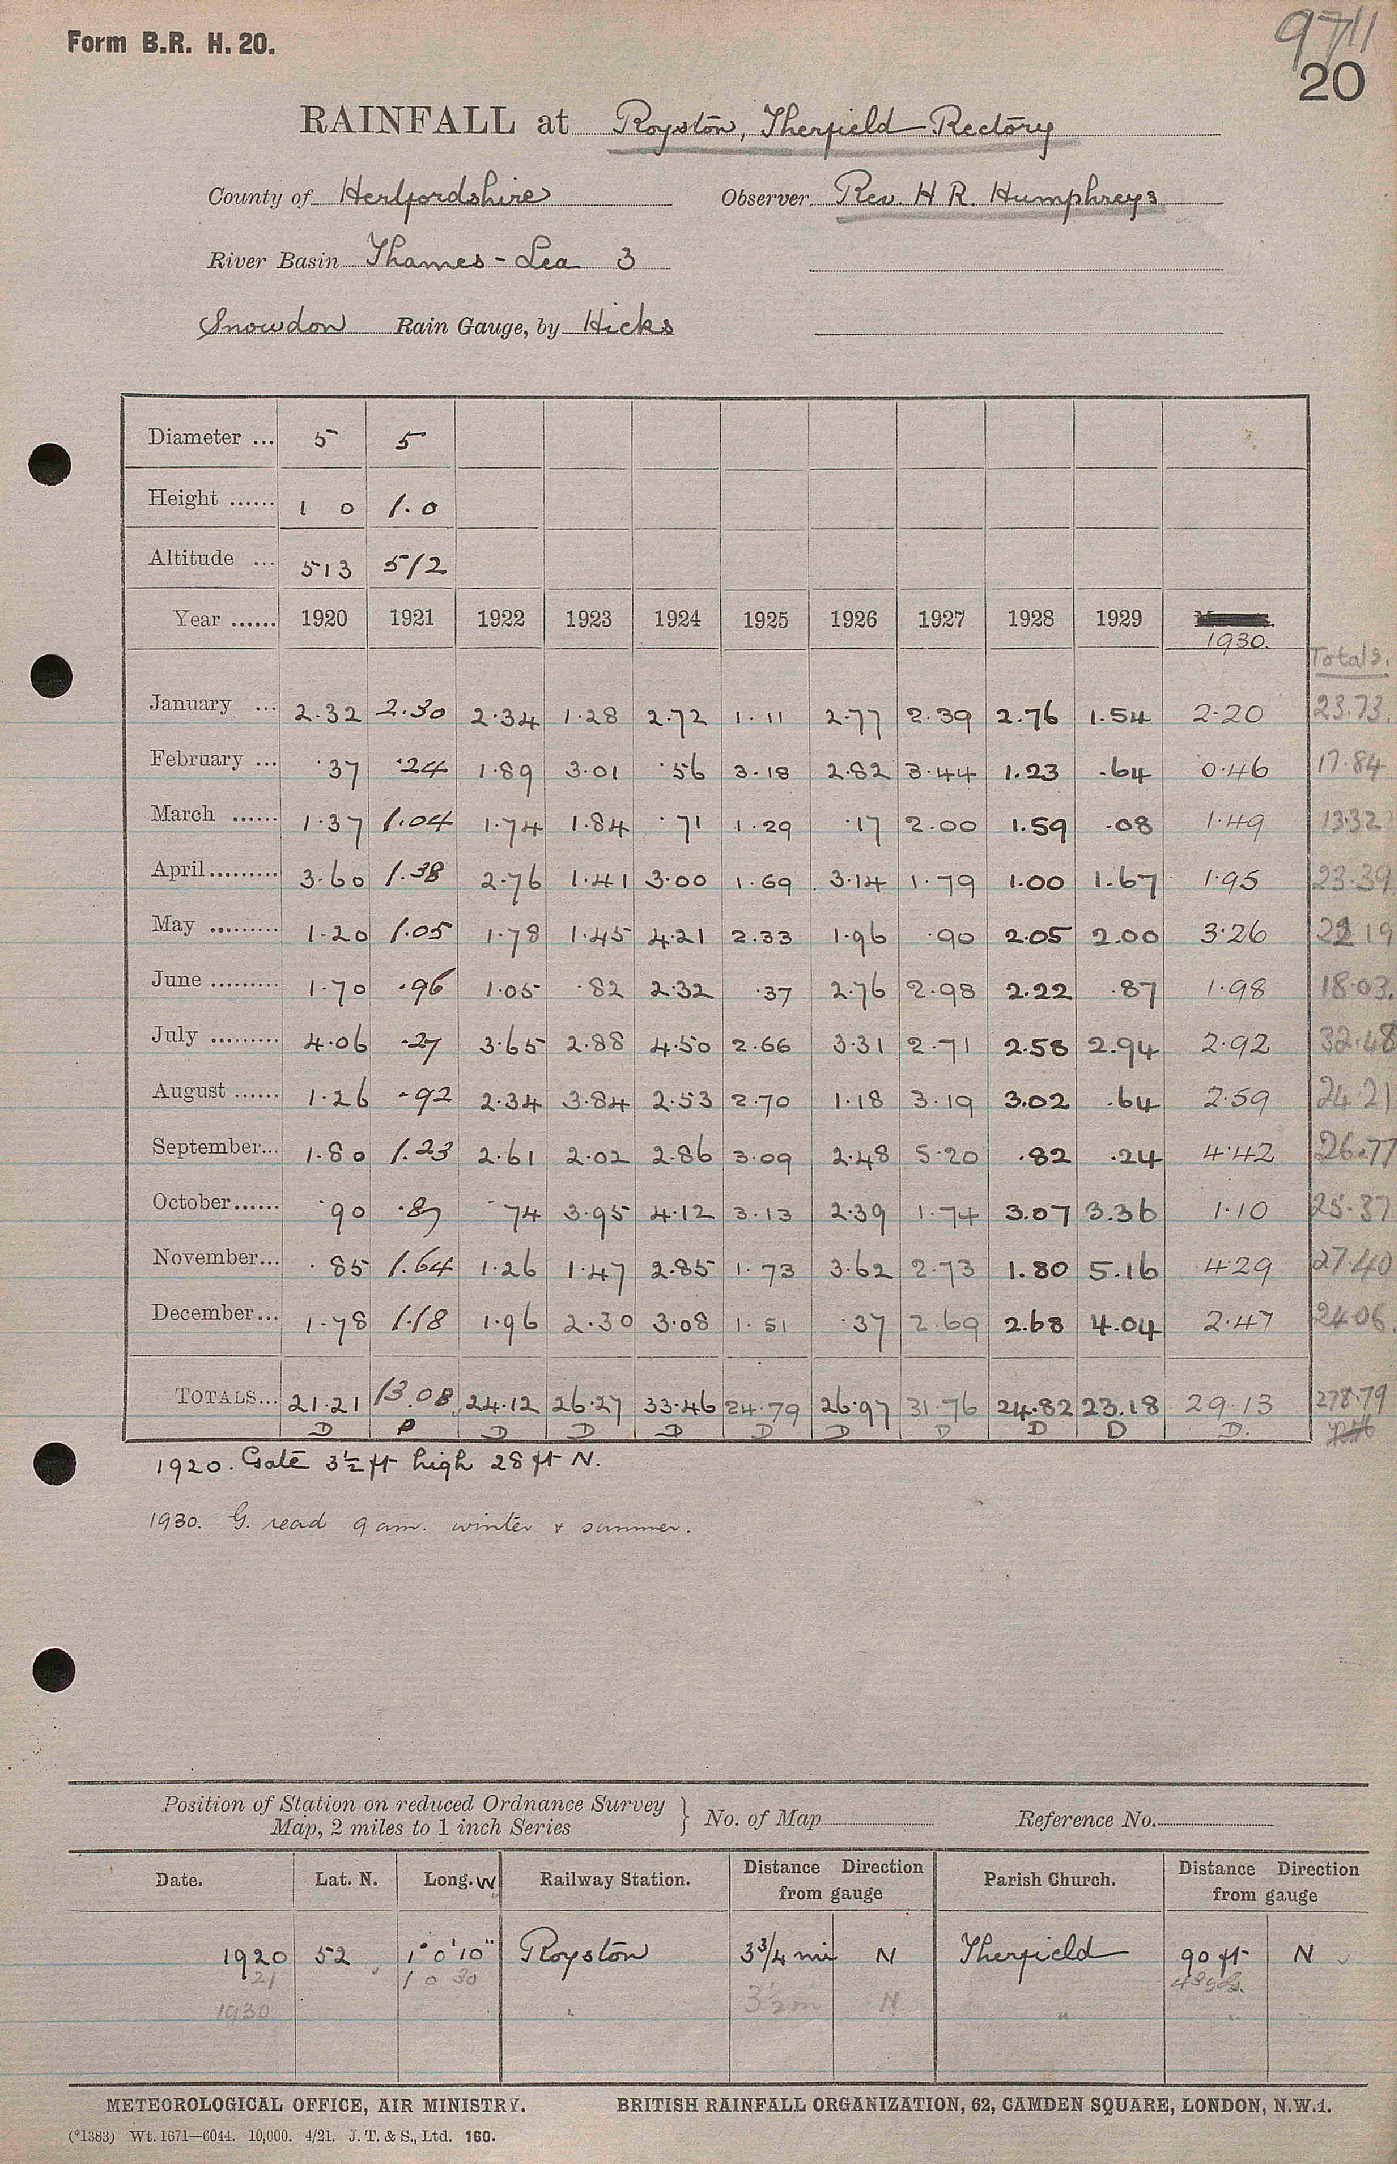 Form B.R. H. 20.
9711
20
RAINFALL at Royston, Therfield Rectory
County of Hertfordshire Observer Rev. H R. Humphreys
River Basin Thames - Lea 3
Snowdon Rain Gauge, by Hicks
Diameter ... 5 5
Height ...... 1 0 1.0
Altitude ... 513 512
Year ...... 1920 1921 1922 1923 1924 1925 1926 1927 1928 1929 1930.
Totals.
January ... 2.32 2.30 2.34 1.28 2.72 1.11 2.77 2.39 2.76 1.54 2.20 23.73
February ... .37 .24 1.89 3.01 .56 3.18 2.82 3.44 1.23 .64 0.46 17.84
March ...... 1.37 1.04 1.74 1.84 .71 1.29 .17 2.00 1.59 .08 1.49 13.32
April......... 3.60 1.38 2.76 1.41 3.00 1.69 3.14 1.79 1.00 1.67 1.95 23.39
May ......... 1.20 1.05 1.78 1.45 4.21 2.33 1.96 .90 2.05 2.00 3.26 22.19
June ......... 1.70 .96 1.05 .82 2.32 .37 2.76 2.98 2.22 .87 1.98 18.03.
July ......... 4.06 .27 3.65 2.88 4.50 2.66 3.31 2.71 2.58 2.94 2.92 32.48
August ...... 1.26 .92 2.34 3.84 2.53 2.70 1.18 3.19 3.02 .64 2.59 24.21
September... 1.80 1.23 2.61 2.02 2.86 3.09 2.48 5.20 .82 .24 4.42 26.77
October...... .90 .87 .74 3.95 4.12 3.13 2.39 1.74 3.07 3.36 1.10 25.37
November... .85 1.64 1.26 1.47 2.85 1.73 3.62 2.73 1.80 5.16 4.29 27.40
December... 1.78 1.18 1.96 2.30 3.08 1.51 .37 2.69 2.68 4.04 2.47 24.06.
TOTALS... 21.21 13.08 24.12 26.27 33.46 24.79 26.97 31.76 24.82 23.18 29.13 278.79
D D D D D D D D D D D.
1920. Gate 3½ ft high 28 ft N.
1930. G. read 9 am. winter & summer.
Position of Station on reduced Ordnance Survey
Map, 2 miles to 1 inch Series } No. of Map Reference No.
Date. Lat. N. Long. W Railway Station. Distance Direction from gauge Parish Church. Distance Direction from gauge
1920 52 1° 0' 10" Royston 3¾ mi N Therfield 90 ft N
21 1 0 30
1930 " 3½ m N " " "
METEOROLOGICAL OFFICE, AIR MINISTRY. BRITISH RAINFALL ORGANIZATION, 62, CAMDEN SQUARE, LONDON, N.W.1.
(*1383) Wt. 1671—6044. 10,000. 4/21. J. T. & S., Ltd. 160.